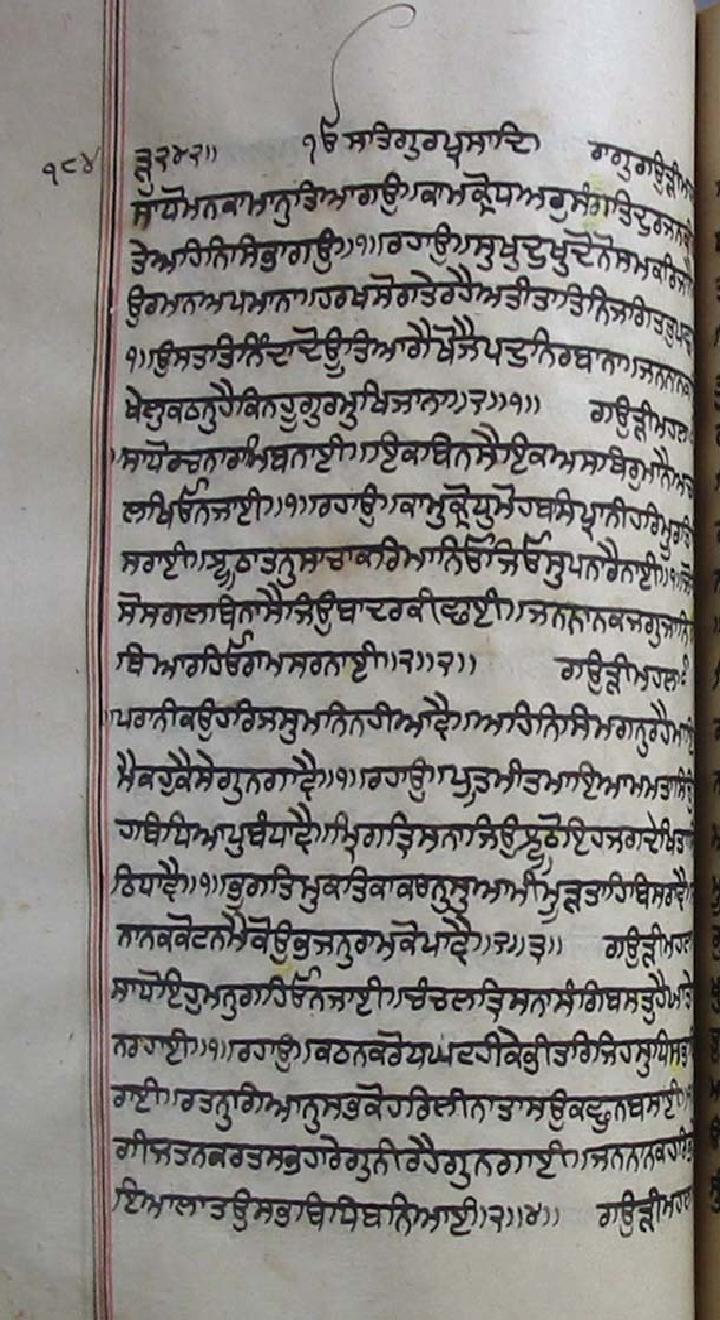 ੧੮੪
ੜੁ੨੪੨॥ ੴ ਸਤਿਗੁਰਪ੍ਰਸਾਦਿ॥ ਰਾਗੁਗਉੜੀਮਹ
ਸਾਧੋਮਨਕਾਮਾਨੁਤਿਆਗਉ॥ਕਾਮਕ੍ਰੋਧਅਰੁਸੰਗਤਿਦੁਰਜਨਕੀ
ਤੇਅਹਿਨਿਸਿਭਾਗਉ॥੧॥ਰਹਾਉ॥ਸੁਖੁਦੁਖੁਦੋਨੋਸਮਕਰਿਜਾ
ਉਰਮਾਨਅਪਮਾਨਾ॥ਹਰਖਸੋਗਤੇਰਹੈਅਤੀਤਾਤਿਨਿਜਗਿਤਤੁਪਛਾ
੧॥ਉਸਤਤਿਨਿੰਦਾਦੋਊਤਿਆਗੈਖੋਜੈਪਦੁਨਿਰਬਾਨਾ॥ਜਨਨਾਨਕ
ਖੇਲੁਕਠਨੁਹੈਕਿਨਹੂਗੁਰਮੁਖਿਜਾਨਾ॥੨॥੧॥ ਗਉੜੀਮਹਲਾ
ਸਾਧੋਰਚਨਾਰਾਮਬਨਾਈ॥ਇਕਬਿਨਸੈਇਕਅਸਥਿਰੁਮਾਨੈਅਚ
ਲਖਿਓਨਜਾਈ॥੧॥ਰਹਾਉ॥ਕਾਮੁਕ੍ਰੋਧੁਮੋਹਬਸਿਪ੍ਰਾਨੀਹਰਿਮੂਰਤਿ
ਸਰਾਈ॥ਝੂਠਾਤਨੁਸਾਚਾਕਰਿਮਾਨਿਓਜਿਓਸੁਪਨਾਰੈਨਾਈ॥੧॥ਜੋ
ਸੋਸਗਲਬਿਨਾਸੈਜਿਉਬਾਦਰਕੀਛਾਈ॥ਜਨਨਾਨਕਜਗੁਜਾਨਿ
ਥਿਆਰਹਿਓਰਾਮਸਰਨਾਈ॥੨॥੨॥ ਗਉੜੀਮਹਲਾ੯
ਪਰਾਨੀਕਉਹਰਿਜਸੁਮਨਿਨਹੀਆਵੈ॥ਅਹਿਨਿਸਿਮਗਨੁਰਹੈਮਾਇ
ਮੈਕਹੁਕੈਸੇਗੁਨਗਾਵੈ॥੧॥ਰਹਾਉ॥ਪੂਤਮੀਤਮਾਇਆਮਮਤਾਸਿਉ
ਹਬਿਧਿਆਪੁਬੰਧਾਵੈ॥ਮ੍ਰਿਗਤ੍ਰਿਸਨਾਜਿਉਝੂਠੋਇਹਜਗਦੇਖਿਤਾ
ਠਿਧਾਵੈ॥੧॥ਭੁਗਤਿਮੁਕਤਿਕਾਕਾਰਨੁਸੁਆਮੀਮੂੜਤਾਹਿਬਿਸਰਾਵੈ
ਨਾਨਕਕੋਟਨਮੈਕੋਊਭਜਨੁਰਾਮਕੋਪਾਵੈ॥੨॥੩॥ ਗਉੜੀਮਹਲਾ
ਸਾਧੋਇਹੁਮਨੁਗਹਿਓਨਜਾਈ॥ਚੰਚਲਤ੍ਰਿਸਨਾਸੰਗਿਬਸਤੁਹੈਯਾਤੇ
ਨਰਹਾਈ॥੧॥ਰਹਾਉ॥ਕਠਨਕਰੋਧਘਟਹੀਕੇਭੀਤਰਿਜਿਹਸੁਧਿਸਭ
ਰਾਈ॥ਰਤਨੁਗਿਆਨੁਸਭਕੋਹਰਿਲੀਨਾਤਾਸਉਕਛੁਨਬਸਾਈ॥੧
ਗੀਜਤਨਕਰਤਸਭਹਾਰੇਗੁਨੀਰਹੈਗੁਨਗਾਈ॥ਜਨਨਾਨਕਹਰਿਭ
ਇਆਲਾਤਉਸਭਬਿਧਿਬਨਿਆਈ॥੨॥੪॥ ਗਉੜੀਮਹਲਾ